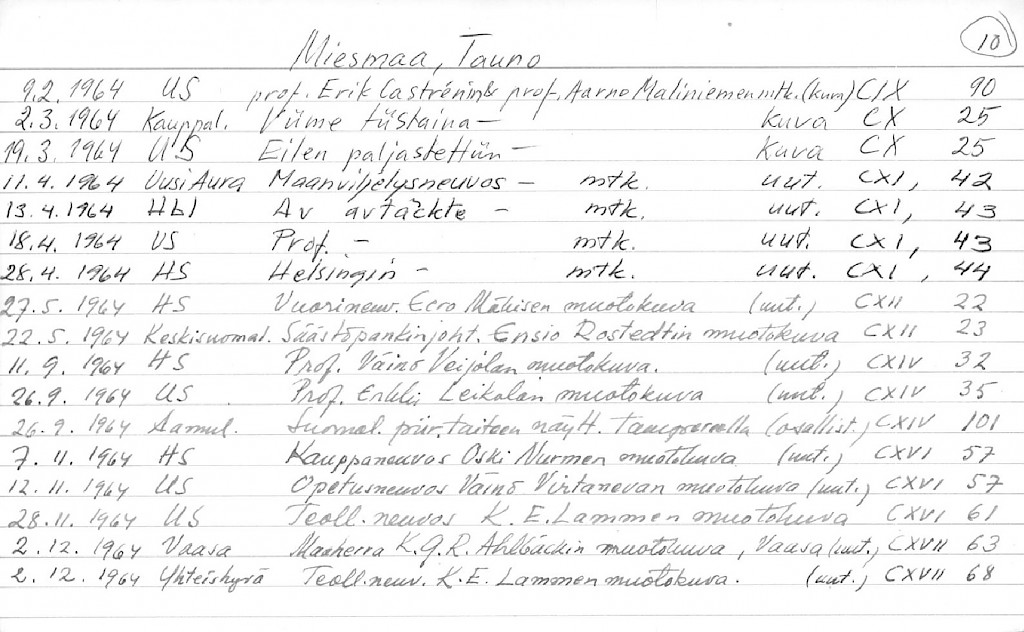 10
Miesmaa, Tauno
9.2.1964 US prof. Erik Castrénin & prof. Aarno Maliniemen mtk. (kuva) CIX 90
2.3.1964 Kauppal. Viime tiistaina - kuva CX 25
19.3.1964 US Eilen paljastettiin - kuva CX 25
11.4.1964 Uusi Aura Maanviljelysneuvos - mtk. uut. CXI, 42
13.4.1964 Hbl Av avtäckte - mtk. uut. CXI, 43
18.4.1964 US Prof. - mtk. uut. CXI, 43
28.4.1964 HS Helsingin - mtk. uut. CXI, 44
27.5.1964 HS Vuorineuv. Eero Mäkisen muotokuva (uut.) CXII 22
22.5.1964 Keskisuomal. Säästöpankinjoht. Ensio Rostedtin muotokuva CXII 23
11.9.1964 HS Prof. Väinö Veijolan muotokuva. (uut.) CXIV 32
26.9.1964 US Prof. Erkki Leikolan muotokuva (uut.) CXIV 35
26.9.1964 Aamul. Suomal. piir. taiteen näytt. Tampereella (osallist.) CXIV 101
7.11.1964 HS Kauppaneuvos Oski Nurmen muotokuva (uut.) CXVI 57
12.11.1964 US Opetusneuvos Väinö Virtanevan muotokuva (uut.) CXVI 57
28.11.1964 US Teoll.neuvos K.E. Lammen muotokuva CXVI 61
2.12.1964 Vaasa Maaherra K.G.R. Ahlbäckin muotokuva, Vaasa (uut.) CXVII 63
2.12.1964 Yhteishyvä Teoll.neuv. K.E. Lammen muotokuva. (uut.) CXVII 68